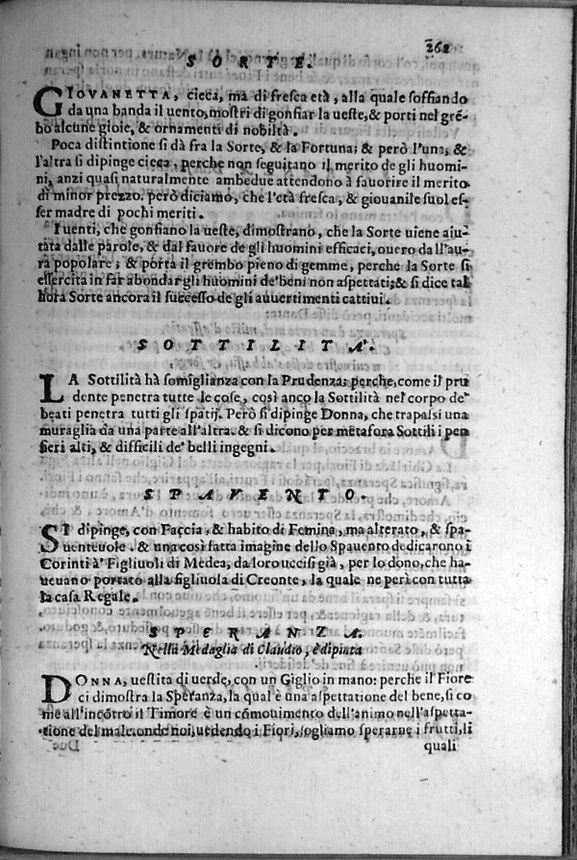 262
SORTE.
GIOVANETTA, cieca, ma di fresca età, alla quale soffiando
da una banda il uento, mostri di gonfiar la ueste, & porti nel grē-
bo alcune gioie, & ornamenti di nobiltà.
Poca distintione si dà fra la Sorte, & la Fortuna; & però l'una, &
l'altra si dipinge cieca, perche non seguitano il merito de gli huomi-
ni, anzi quasi naturalmente ambedue attendono à fauorire il merito
di minor prezzo. però diciamo, che l'età fresca, & giouanile suol es-
ser madre di pochi meriti.
I uenti, che gonfiano la ueste, dimostrano, che la Sorte uiene aiu-
tata dalle parole, & dal fauore de gli huomini efficaci, ouero dall'au-
ra popolare; & porta il grembo pieno di gemme, perche la Sorte si
essercita in far abondar gli huomini de' beni non aspettati; & si dice tal
hora Sorte ancora il successo de gli auuertimenti cattiui.
SOTTILITÀ.
LA Sottilità hà somiglianza con la Prudenza; perche, come il pru
dente penetra tutte le cose, così anco la Sottilità nel corpo de'
beati penetra tutti gli spatij. Però si dipinge Donna, che trapassi una
muraglia da una parte all'altra. & si dicono per metafora Sottili i pen
sieri alti, & difficili de' belli ingegni.
SPAVENTO.
SI dipinge, con Faccia, & habito di Femina, ma alterato, & spa-
uenteuole. & una così fatta imagine dello Spauento dedicarono i
Corinti à' Figliuoli di Medea, da loro uccisi già, per lo dono, che ha-
ueuano portato alla figliuola di Creonte, la quale ne perì con tutta
la casa Regale.
SPERANZA.
Nella Medaglia di Claudio, è dipinta
DONNA, uestita di uerde, con un Giglio in mano: perche il Fiore
ci dimostra la Speranza, la qual è una aspettatione del bene, si co
me all'incōtro il Timore è un cōmouimento dell'animo nell'aspetta-
tione del male. onde noi, uedendo i Fiori, sogliamo sperarne i frutti, li
quali